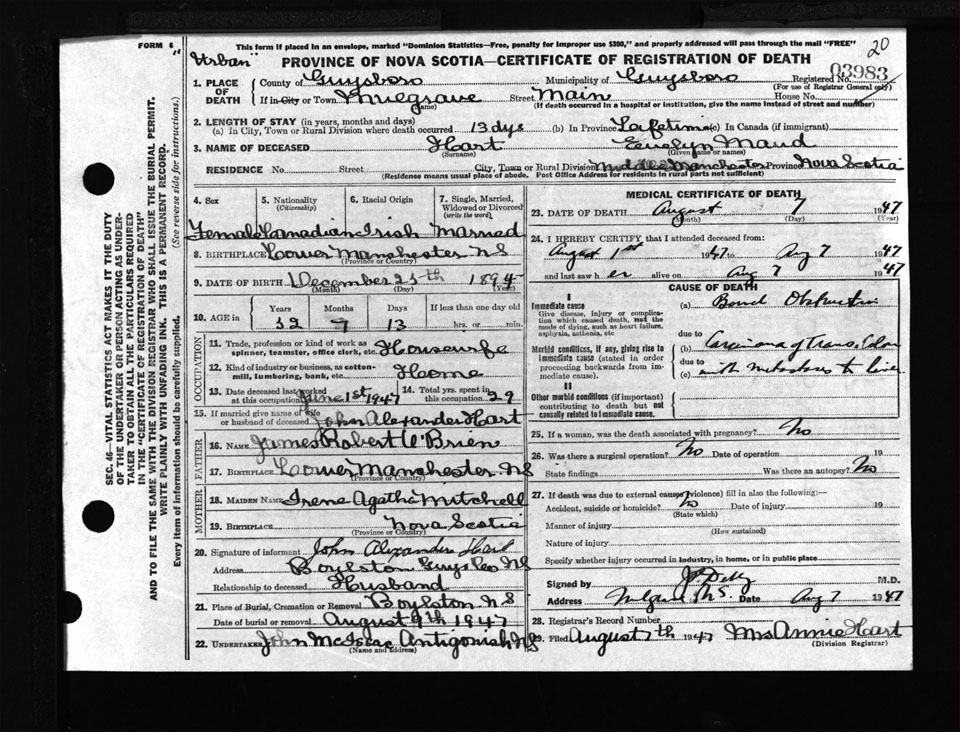 FORM 6
This form if placed in an envelope, marked "Dominion Statistics—Free, penalty for improper use $300," and properly addressed will pass through the mail "FREE"
20
"Urban"
PROVINCE OF NOVA SCOTIA—CERTIFICATE OF REGISTRATION OF DEATH
03983
1. PLACE OF DEATH
County of Guysboro Municipality of Guysboro Registered No.
(For use of Registrar General only)
If in City or Town Mulgrave Street Main House No.
(Name) (If death occurred in a hospital or institution, give the name instead of street and number)
2. LENGTH OF STAY (in years, months and days)
(a) In City, Town or Rural Division where death occurred 13 dys (b) In Province Lifetime (c) In Canada (if immigrant)
3. NAME OF DECEASED Hart Evelyn Maud
(Surname) (Given name or names)
RESIDENCE No. Street City, Town or Rural Division Middle Manchester Province Nova Scotia
(Residence means usual place of abode. Post Office Address for residents in rural parts not sufficient)
4. Sex 5. Nationality (Citizenship) 6. Racial Origin 7. Single, Married, Widowed or Divorced (write the word)
Female Canadian Irish Married
8. BIRTHPLACE Lower Manchester NS
(Province or Country)
9. DATE OF BIRTH December 25th 1894
(Month) (Day) (Year)
10. AGE in Years Months Days If less than one day old
52 7 13 hrs. or min.
OCCUPATION
11. Trade, profession or kind of work as spinner, teamster, office clerk, etc. Housewife
12. Kind of industry or business, as cotton-mill, lumbering, bank, etc. Home
13. Date deceased last worked at this occupation June 1st 1947 14. Total yrs. spent in this occupation 29
15. If married give name of wife or husband of deceased John Alexander Hart
FATHER
16. Name James Robert O'Brien
17. Birthplace Lower Manchester NS
(Province or Country)
MOTHER
18. Maiden Name Irene Agatha Mitchell
19. Birthplace Nova Scotia
(Province or Country)
20. Signature of informant John Alexander Hart
Address Boylston Guysboro NS
Relationship to deceased Husband
21. Place of Burial, Cremation or Removal Boylston NS
Date of burial or removal August 9th 1947
22. Undertaker John McIsaac Antigonish NS
(Name and address)
MEDICAL CERTIFICATE OF DEATH
23. DATE OF DEATH August 7 1947
(Month) (Day) (Year)
24. I HEREBY CERTIFY that I attended deceased from:
August 1st 1947 to Aug 7 1947
and last saw her alive on Aug 7 1947
CAUSE OF DEATH
I
Immediate cause
Give disease, injury or complication which caused death, not the mode of dying, such as heart failure, asphyxia, asthenia, etc
(a) Bowel Obstruction
due to
Morbid conditions, if any, giving rise to immediate cause (stated in order proceeding backwards from immediate cause).
(b) Carcinoma of Trans. Colon
due to
(c) with metastases to liver
II
Other morbid conditions (if important) contributing to death but not causally related to immediate cause.
25. If a woman, was the death associated with pregnancy? No
26. Was there a surgical operation? No Date of operation 19
State findings Was there an autopsy? No
27. If death was due to external causes (violence) fill in also the following:—
Accident, suicide or homicide? No Date of injury 19
(State which)
Manner of injury
(How sustained)
Nature of injury
Specify whether injury occurred in industry, in home, or in public place
Signed by M.D.
Address Mulgrave N.S. Date Aug 7 1947
28. Registrar's Record Number
29. Filed August 7th 1947 Mrs Annie Hart
(Division Registrar)
SEC. 46—VITAL STATISTICS ACT MAKES IT THE DUTY
OF THE UNDERTAKER OR PERSON ACTING AS UNDER-
TAKER TO OBTAIN ALL THE PARTICULARS REQUIRED
IN THE "CERTIFICATE OF REGISTRATION OF DEATH"
AND TO FILE THE SAME WITH THE DIVISION REGISTRAR WHO SHALL ISSUE THE BURIAL PERMIT.
WRITE PLAINLY WITH UNFADING INK. THIS IS A PERMANENT RECORD.
Every item of information should be carefully supplied. (See reverse side for instructions.)